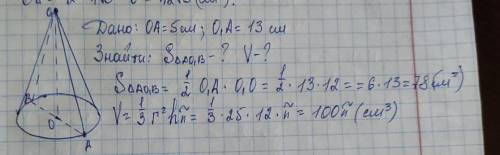 Дано: OA=5см; O₁A=13 см
Знайти: S△AO₁B-? V-?
S△AO₁B = 1/2 O₁A · O₁O = 1/2 · 13 · 12 = =6·13=78(см²)
V = 1/3 r² h π̃ = 1/3 · 25 · 12 · π̃ = 100π̃ (см³)
B
O
A